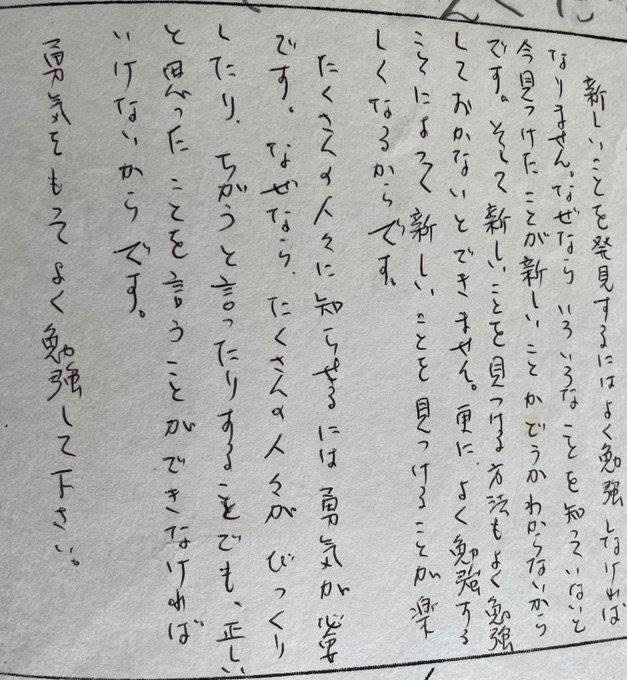 新しいことを発見するにはよく勉強しなければ
なりません。なぜなら いろいろなことを知っていないと
今見つけたことが新しいことかどうかわからないから
です。そして新しいことを見つける方法もよく勉強
しておかないとできません。更に、よく勉強する
ことによって新しいことを見つけることが楽
しくなるからです。
たくさんの人々に知らせるには勇気が必要
です。なぜなら、たくさんの人々がびっくり
したり、ちがうと言ったりすることでも、正しい
と思ったことを言うことができなければ
いけないからです。
勇気をもってよく勉強して下さい。